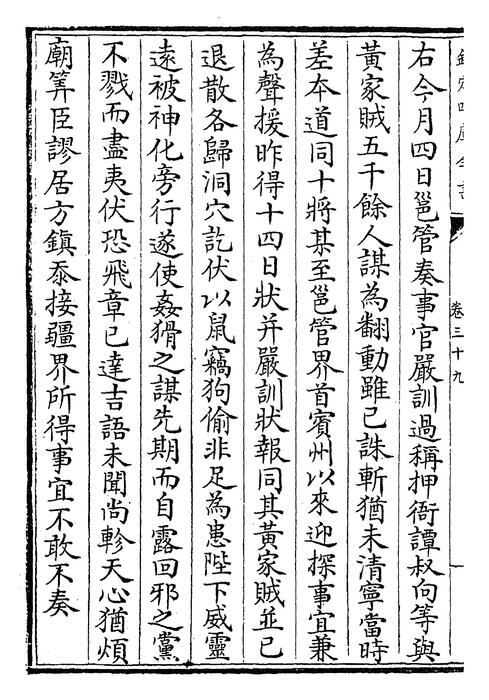 欽定四庫全書
卷三十九
右今月四日邕管奏事官嚴訓過稱押衙譚叔向等與
黃家賊五千餘人謀為翻動雖已誅斬猶未清寧當時
差夲道同十將某至邕管界首賓州以來迎探事宜兼
為聲援昨得十四日狀并嚴訓狀報同其黃家賊並已
退散各歸洞穴訖伏以鼠竊狗偷非足為患陛下威靈
遠被神化旁行遂使姦猾之謀先期而自露回邪之黨
不戮而盡夷伏恐飛章已達吉語未聞尚軫天心猶煩
廟筭臣謬居方鎮忝接疆界所得事宜不敢不奏